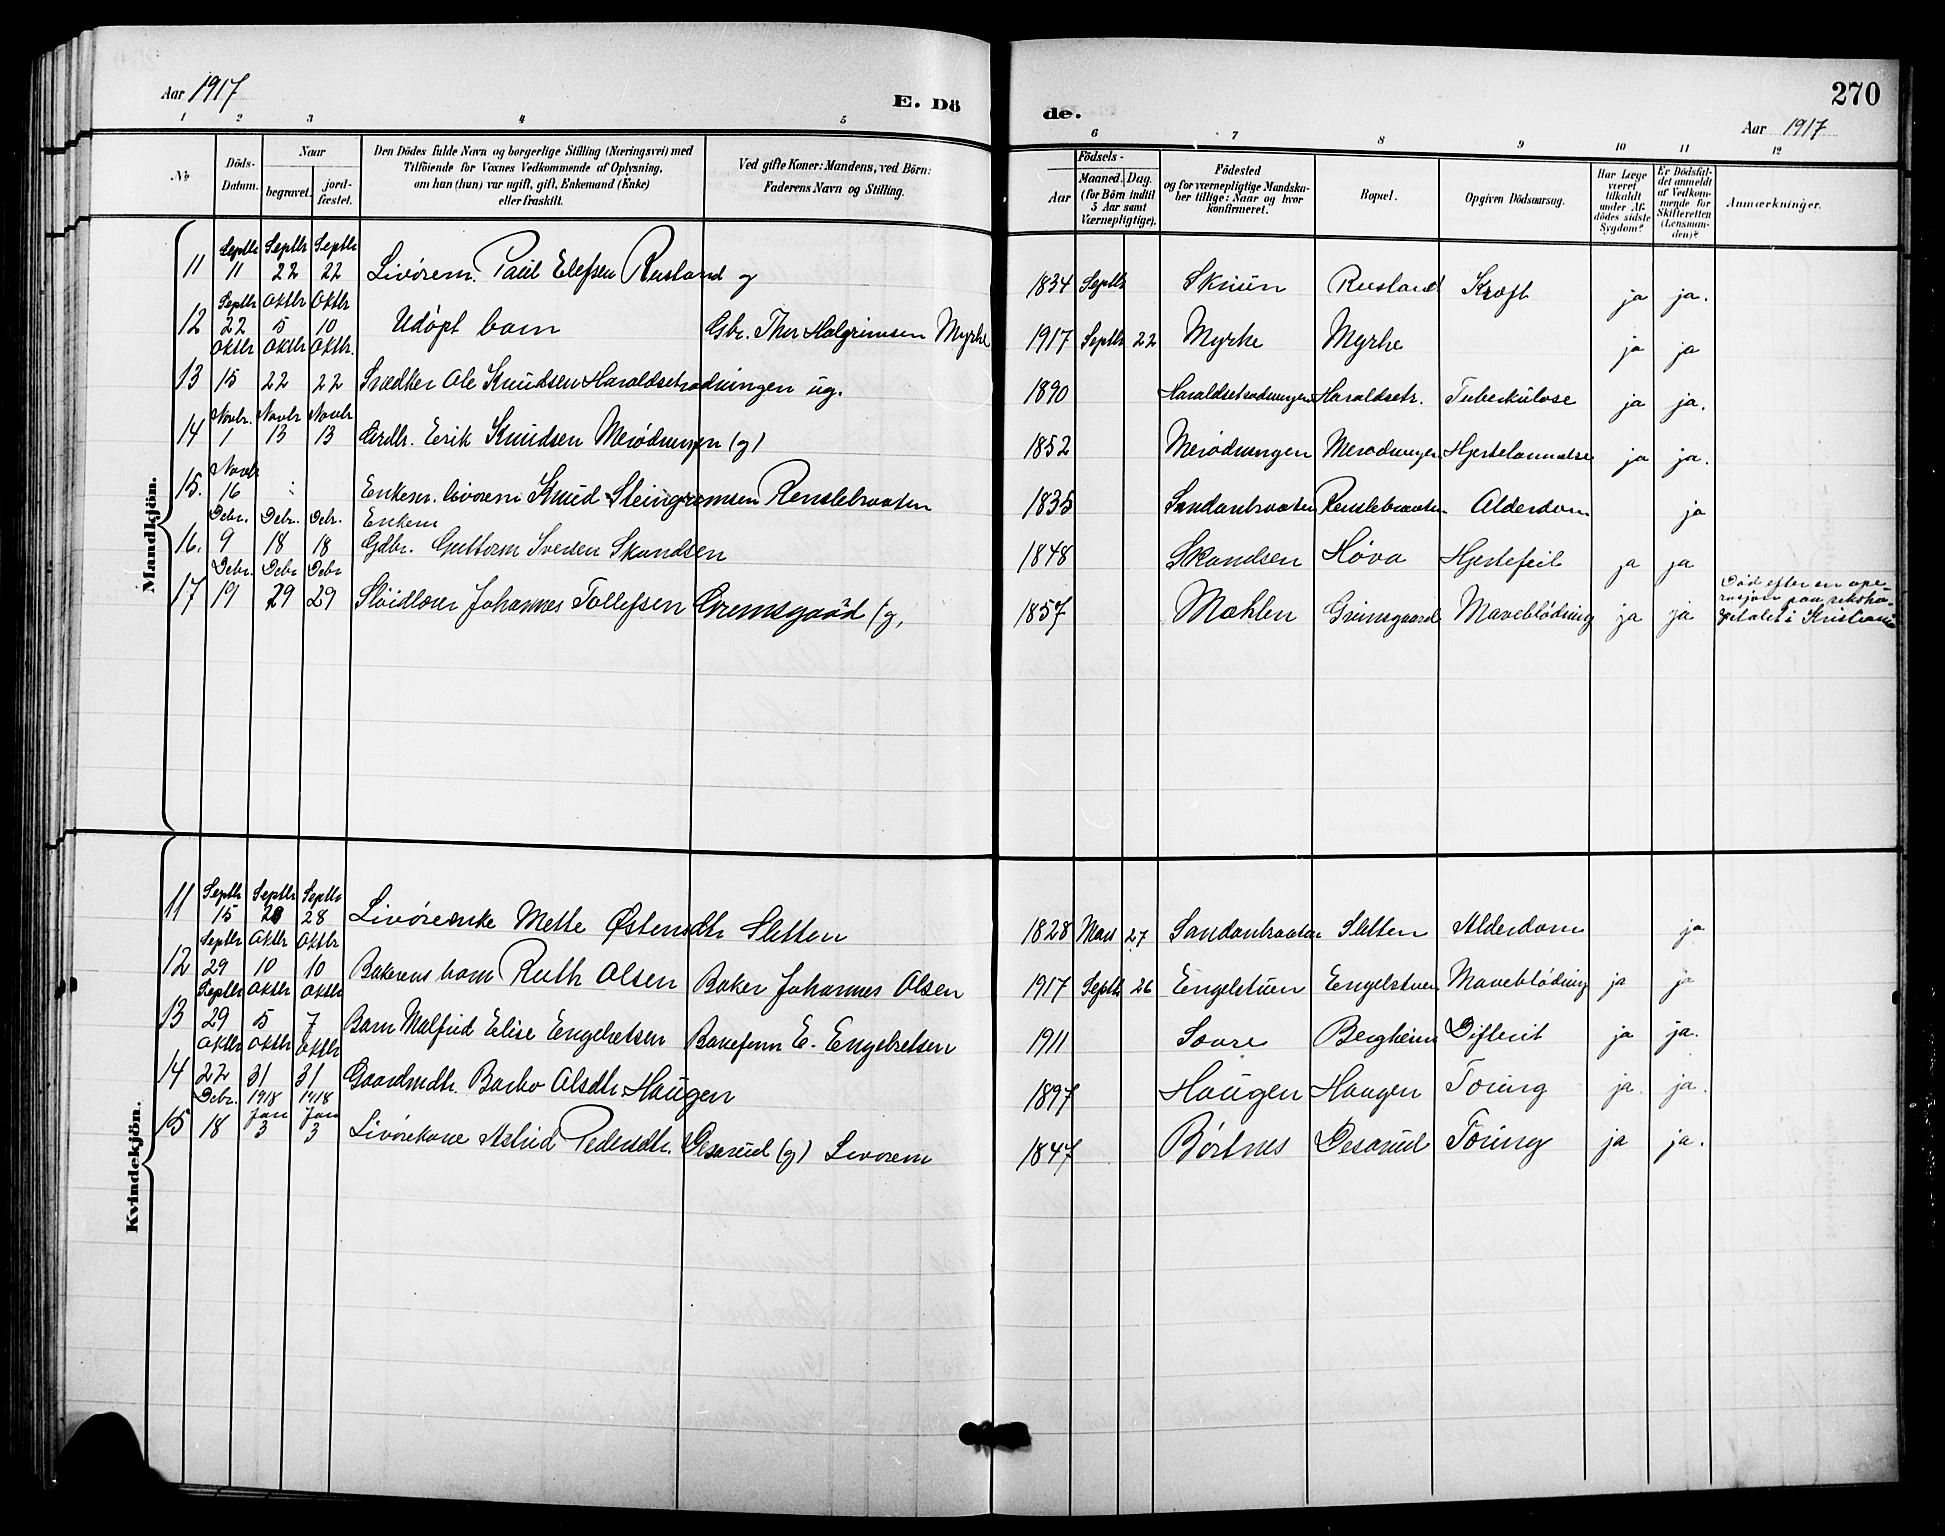 Aar 1917
E. Dö
de.
270
Aar 1917
1 2 3 4 5 6 7 8 9 10 11 12
No
Döds-Datum.
Naar
begravet.
jordfæstet.
Den Dödes fulde Navn og borgerlige Stilling (Næringsvei) med
Tilföiende for Voxnes Vedkommende af Oplysning,
om han (hun) var ugift, gift, Enkemand (Enke)
eller fraskilt.
Ved gifte Koner: Mandens, ved Börn:
Faderens Navn og Stilling.
Födsels-
Aar
Maaned. Dag.
(for Börn indtil
5 Aar samt
Værnepligtige).
Födested
og for værnepligtige Mandska-
ber tillige: Naar og hvor
konfirmeret.
Bopæl.
Opgiven Dödsaarsag.
Har Læge
været
tilkaldt
under Af-
dödes sidste
Sygdom?
Er Dödsfal-
det anmeldt
af Vedkom-
mende for
Skifteretten
(Lensman-
den)?
Anmærkninger.
Mandkjön.
11 Septbr 11 Septbr 22 Septbr 22 Livörem. Paul Elefsen Rusland g 1834 Septbr Skuun Rusland Kræft ja ja.
12 Septbr 22 Oktbr 5 Oktbr 10 Udöpt barn Gbr. Thor Halgrimsen Myrhe 1917 Septbr 22 Myrke Myrhe ja ja
13 Oktbr 15 Oktbr 22 Oktbr. 22 Snedker Ole Knudsen Haraldsetrødningen ug. 1890 Haraldsetrødningen Haraldsetr. Tuberkulose ja ja.
14 Novbr. 1 Novbr 13 Novbr 13 Erik Knudsen Merødningen (g) 1852 Merödningen Merødningen Hjertelammelse ja ja.
15. Novbr 16 Enkem. livörem Knud Steingrimsen Renslebraaten 1835 Sandanbraaten Renslebraaten Alderdom ja
16. Debr. 9 Debr. 18 Debr. 18 Enkem Gdbr. Guttorm Iversen Skandsen 1848 Skandsen Höva Hjertefeil ja ja
17 Debr. 19 Debr 29 Debr 29 Slöidlærer Johannes Tollefsen Grimsgaard (g. 1857 Mæhlen Grimsgaard Maveblödning ja ja Död efter en ope-
rasjon paa rikshos-
pitalet i Kristiania
Kvindekjön.
11 Septbr 15 Septbr 28 Septbr 28 Livöreenke Mette Østensdtr Sletten 1828 Mars 27 Sandanbraaten Sletten Alderdom ja
12 Septbr 29 Oktbr 10 Oktbr 10 Bakerens barn Ruth Olsen Baker Johannes Olsen 1917 Septbr 26 Engelstuen Engelstuen Maveblödning ja ja
13 Septbr 29 Oktbr 5 Oktbr 7 Barn Malfrid Elise Engebretsen Baneform E. Engebretsen 1911 Bergheim Difterit ja ja.
14 Oktbr 22 Oktbr 31 Oktbr 31 Gaardmdtr. Barbo Olsdtr Haugen 1897 Haugen Haugen Tæring ja. ja.
15 Debr. 18 1918 Jan 3 1918 Jan 3 Livörekone Astrid Pedersdtr. Desarud (g) Livorem 1847 Börtnes Desarud Tæring ja ja.